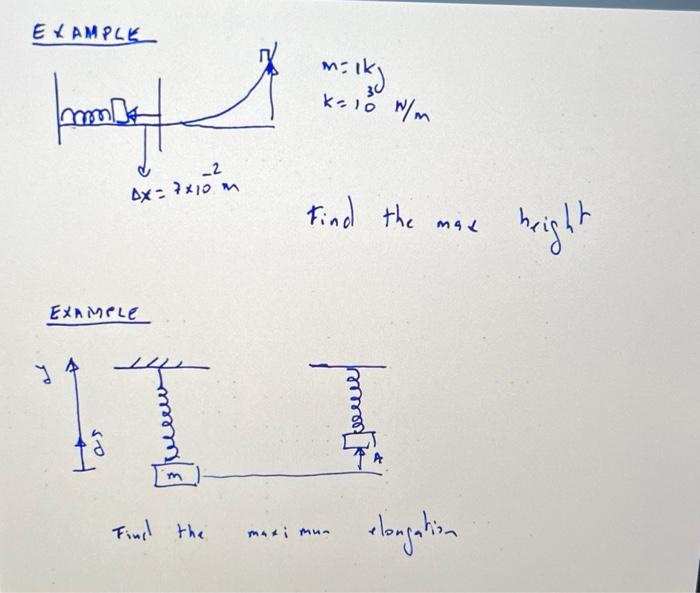 EXAMPLE
m=1kg
k=10³ N/m
Δx=7x10⁻² m
Find the max height
EXAMPLE
y
ĵ
m
A
Find the maximum elongation